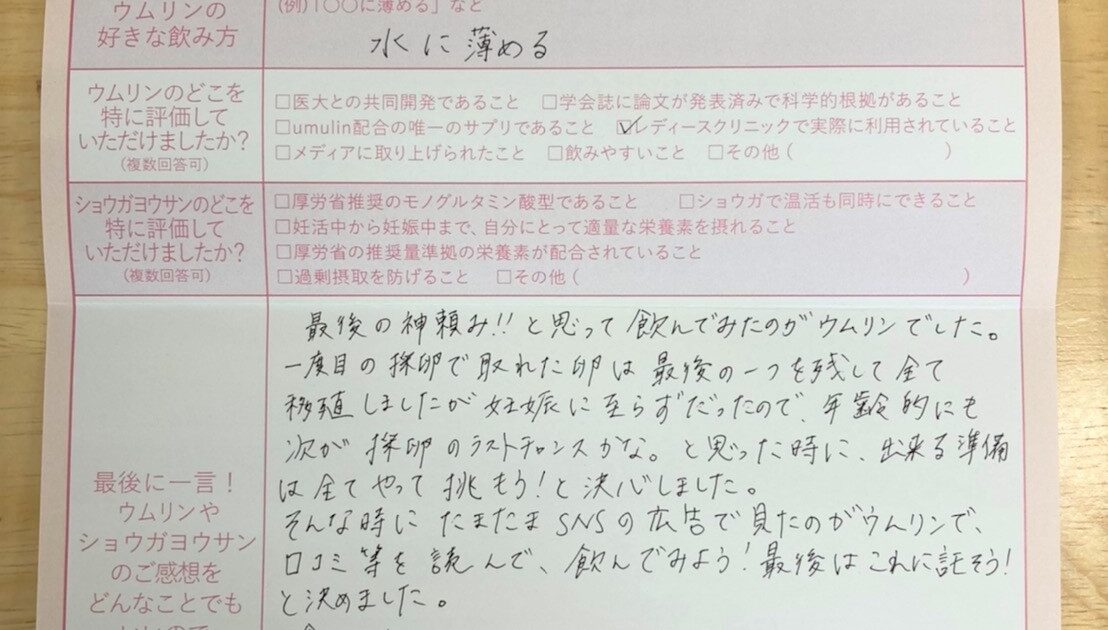 ウムリンの
好きな飲み方
(例)「○○に薄める」など
水に薄める
ウムリンのどこを
特に評価して
いただけましたか?
(複数回答可)
□医大との共同開発であること □学会誌に論文が発表済みで科学的根拠があること
□umulin配合の唯一のサプリであること ☑レディースクリニックで実際に利用されていること
□メディアに取り上げられたこと □飲みやすいこと □その他( )
ショウガヨウサンのどこを
特に評価して
いただけましたか?
(複数回答可)
□厚労省推奨のモノグルタミン酸型であること □ショウガで温活も同時にできること
□妊活中から妊娠中まで、自分にとって適量な栄養素を摂れること
□厚労省の推奨量準拠の栄養素が配合されていること
□過剰摂取を防げること □その他( )
最後に一言!
ウムリンや
ショウガヨウサン
のご感想を
どんなことでも
最後の神頼み!!と思って飲んでみたのがウムリンでした。
一度目の採卵で取れた卵は最後の一つを残して全て
移殖しましたが妊娠に至らずだったので、年齢的にも
次が採卵のラストチャンスかな。と思った時に、出来る準備
は全てやって挑もう!と決心しました。
そんな時にたまたまSNSの広告で見たのがウムリンで、
口コミ等を読んで、飲んでみよう!最後はこれに託そう!
と決めました。